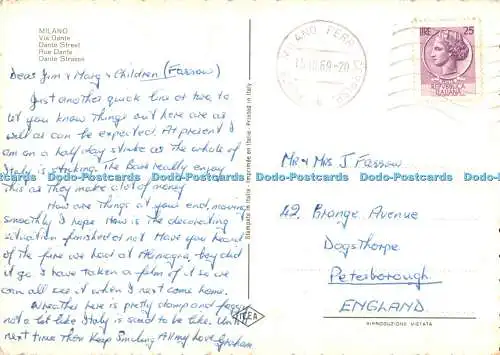 MILANO
Via Dante
Dante Street
Rue Dante
Dante Strasse
Dear Jim & Mary & Children (FASSOW)
Just another quick line or two, to
let you know things out here are as
well as can be expected. At present I
am on a half day strike as the whole of
Italy is striking. The Bars really enjoy
this as they make a lot of money
How are things at your end, moving
smoothly I hope. How is the decorating
situation finished or not. Have you heard
of the fire we had at Alemagna, boy did
it go I have taken a film of it so we
can all see it when I next come home.
Weather here is pretty damp and foggy
not a bit like Italy is said to be like. Until
next time then Keep Smiling All my love Graham.
Stampata in Italia - Imprimée en Italie - Printed in Italy
MILANO FERR
-20
LIRE 25
REPVBBLICA
ITALIANA
Mr & Mrs J Fassow
42, Grange Avenue
Dogsthorpe
Peterborough
ENGLAND
RIPRODUZIONE VIETATA
Dodo-Postcards Dodo-Postcards Dodo-Postcards Dodo-Postcards Dodo-Postcards